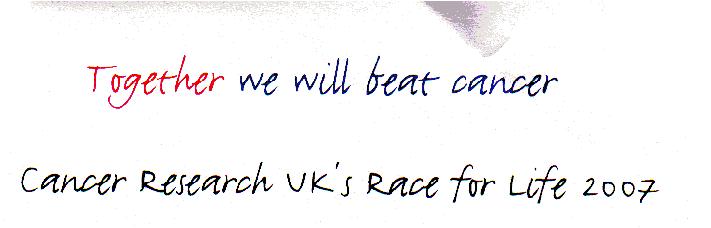 Together we will beat cancer
Cancer Research UK's Race for Life 2007